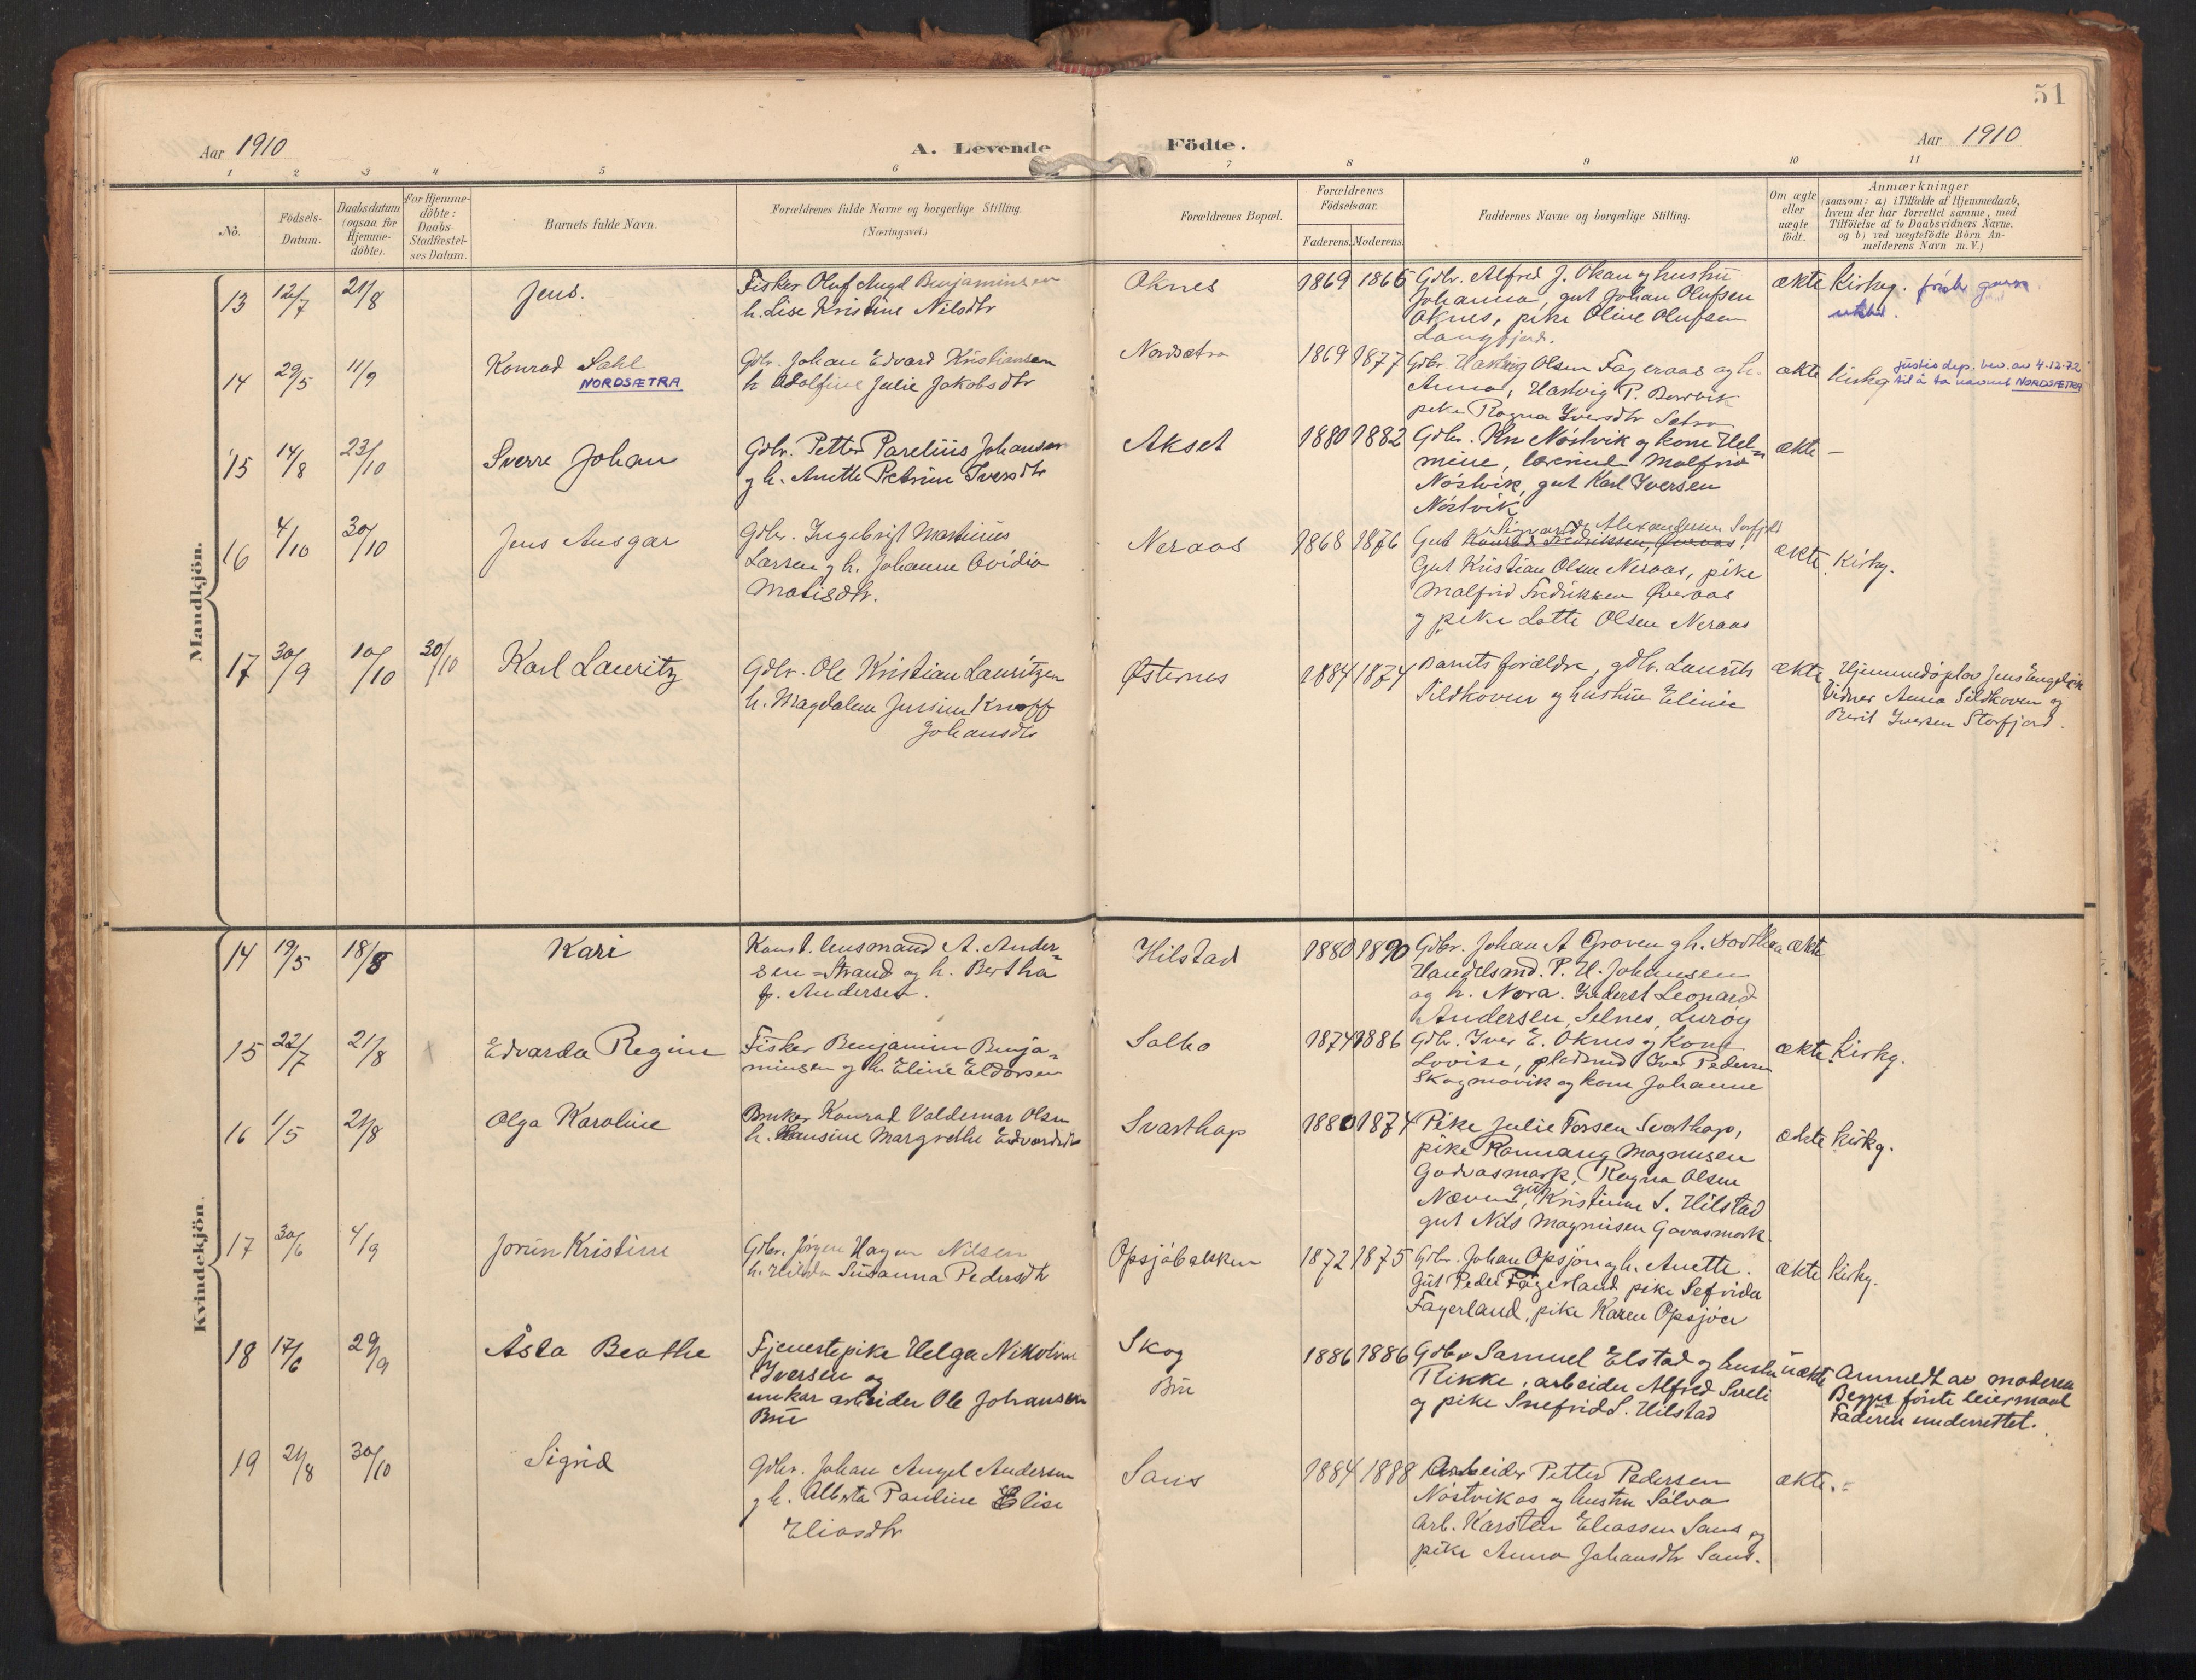 51
Aar 1910
A. Levende Födte.
Aar 1910
1 2 3 4 5 6 7 8 9 10 11
No.
Födsels-
Datum.
Daabsdatum
(ogsaa for
Hjemme-
döbte).
For Hjemme-
döbte:
Daabs-
Stadfæstel-
ses Datum.
Barnets fulde Navn.
Forældrenes fulde Navne og borgerlige Stilling.
(Næringsvei.)
Forældrenes Bopæl.
Forældrenes
Födselsaar.
Faderens. Moderens.
Faddernes Navne og borgerlige Stilling.
Om ægte
eller
uægte
födt.
Anmærkninger
(saasom: a) i Tilfælde af Hjemmedaab,
hvem der har forrettet samme, med
Tilföielse af to Daabsvidners Navne.
og b) ved uægtefödte Börn An-
melderens Navn m. V.)
Mandkjön.
13 12/7 21/8 Jens.
Fisker Oluf Angel Benjaminsen
h. Lise Kristine Nilsdtr
Oknes 1869 1866
Gdbr. Alfred J. Okan og hustru
Johanna, gut Johan Olufsen
Oknes, pike Oline Olufsen
Langfjord.
ækte Kirkg.
14 29/5 11/9 Konrad Dahl
NORDSÆTRA
Gdbr. Johan Edvard Kristiansen
h. Adolfine Julie Jakobsdtr
Nordsætra 1869 1877
Gdbr. Hartvig Olsen Fageraas og h.
Anna, Hartvig P.
pike Ragna Iversdtr Sætra
ækte Kirkg
Justisdep. bev. av 4.12.72
til å ta navnet NORDSÆTRA
15 14/8 23/10 Sverre Johan
Gdbr. Petter Parelius Johansen
og h. Anette Petrine Iversdtr
Akset 1880 1882
Gdbr. Kr. Nöstvik og kone Hel-
mine, lærerinde Malfrid
Nöstvik, gut Karl Iversen
Nöstvik
ækte —
16 4/10 30/10 Jens Ansgar
Gdbr. Ingebrigt Martinus
Larsen og h. Johanna Ovidia
Matisdtr.
Neraas 1868 1876
Sigvard Alexandersen Sorfjord
Gut Konrad Fredriksen, Øveraas,
Gut Kristian Olsen Neraas, pike
Malfrid Fredriksen Øveraas
og pike Lotte Olsen Neraas
ækte Kirkg.
17 30/9 10/10 30/10 Karl Lauritz
Gdbr. Ole Kristian Lauritzen
h. Magdalena Jensine Knoff
Johansdtr
Østernes 1884 1874
Barnets forældre, gdbr. Laurits
Sildhoven og hustru Eline
ækte Hjemmedöpt av Jens Engelsen
Vidner Anna Sildhoven og
Berit Iversen Storfjord.
Kvindekjön.
14 19/5 18/8 Kari
Konst. lensmand A. Ander-
sen-Strand og h. Bertha
f. Andersen.
Hilstad 1880 1890
Gdbr. Johan A Groven og h. Dorthea
Handelsmd. P. H. Johansen
og h. Nora. Leonard
Andersen, Selnes, Luröy
ækte
15 22/7 21/8 Edvarda Regine
Fisker Benjamin Benja-
minsen og h. Eline Eldorsen
Salbo 1874 1886
Gdbr. Iver E. Oknes og kone
Lovise, pladsmd Iver Pedersen
Skogmovik og kone Johanne
ækte Kirkg.
16 1/5 21/8 Olga Karoline
Bruker Konrad Valdemar Olsen
h. Hansine Margrethe Edvardsdtr
Svarthap 1880 1874
Pike Julie Torsen Svarthap,
pike Rannang Magnusen
Godvasmark, Ragna Olsen
gut
Næven, Kristinne S. Hilstad
gut Nils Magnusen Gavasmark.
ækte Kirkg.
17 30/6 4/9 Jorun Kristine
Gdbr. Jörgen Hagen Nilsen
h. Hilda Susanna Pedersdtr
Opsjöbakken 1872 1875
Gdbr. Johan Opsjön og h. Anette.
Gut Peder Fagerland pike Sefrida
Fagerland, pike Karen Opsjöen
ækte Kirkg.
18 17/6 29/9 Åsta Beathe
Tjenestepike Helga Nikoline
Iversen og
unkar arbeider Ole Johansen
Bru
Skog
Bru
1886 1886
Gdbr Samuel Elstad og hustru
Rikke, arbeider Alfred Sveli
og pike Snefrid S. Hilstad
uækte Anmeldt av moderen
Begges förste leiermaal
Faderen underrettet.
19 21/8 30/10 Sigrid
Gdbr. Johan Angel Andersen
og h. Alberta Pauline Elise
Eliasdtr
Sans 1884 1888
Arbeider Petter Pedersen
Nöstvikas og hustru Sålva
Arb. Karsten Eliassen Sans og
pike Anna Johansdtr Sans.
ækte. -